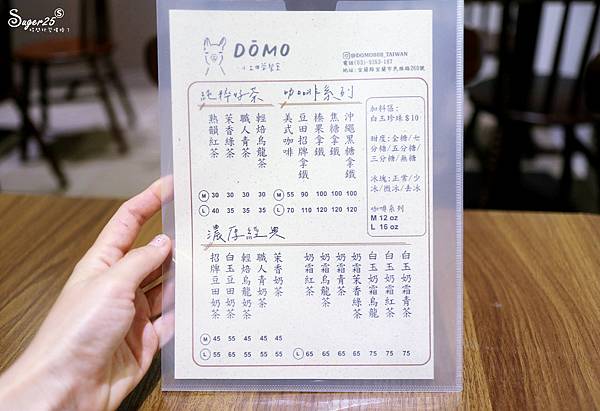 Suger25
DŌMO
@DOMO888_TAIWAN
電話(03)-9353-187
地址:宜蘭縣宜蘭市民族路260號
純粹好茶
熟韻紅茶
茉香綠茶
職人青茶
輕焙烏龍茶
M 30 30 30 30
L 40 35 35 35
咖啡系列
美式咖啡
豆田招牌拿鐵
榛果拿鐵
焦糖拿鐵
沖繩黑糖拿鐵
M 55 90 100 100 100
L 70 110 120 120 120
加料區:
白玉珍珠$10
甜度:全糖/七
分糖/五分糖/
三分糖/無糖
冰塊:正常/少
冰/微冰/去冰
咖啡系列
M 12 oz
L 16 oz
濃厚經典
招牌豆田奶茶
白玉豆田奶茶
輕焙烏龍奶茶
職人青奶茶
茉香奶茶
M 45 45 45 45 45
L 55 55 55 55 55
奶霜紅茶
奶霜烏龍茶
奶霜青茶
奶霜茉香綠茶
白玉奶霜烏龍
白玉奶霜紅茶
白玉奶霜青茶
L 65 65 65 65 75 75 75